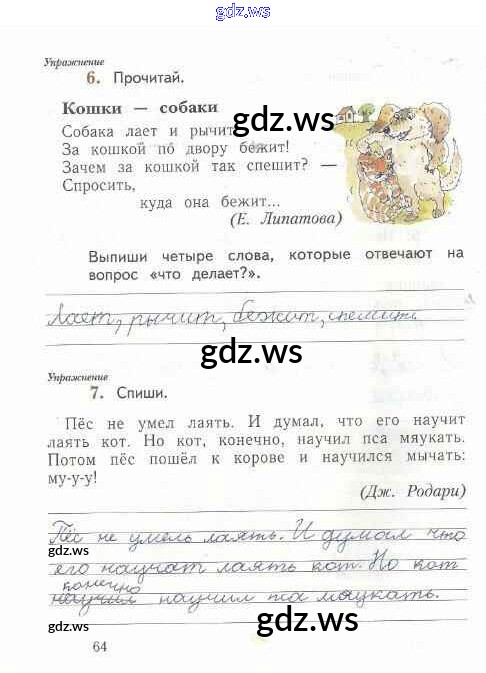 gdz.ws
Упражнение
6. Прочитай.
Кошки — собаки
Собака лает и рычит
gdz.ws
За кошкой по́ двору бежит!
Зачем за кошкой так спешит? —
Спросить,
куда она бежит...
(Е. Липатова)
Выпиши четыре слова, которые отвечают на
вопрос «что делает?».
лает, рычит, бежит, спешит
gdz.ws
Упражнение
7. Спиши.
Пёс не умел лаять. И думал, что его научит
лаять кот. Но кот, конечно, научил пса мяукать.
Потом пёс пошёл к корове и научился мычать:
му-у-у!
(Дж. Родари)
Пёс не умель лаять. И думал что
gdz.ws
gdz.ws
его научат лаять кот. Но кот
конечно
научил научил пса мяукать.
gdz.ws
gdz.ws
64